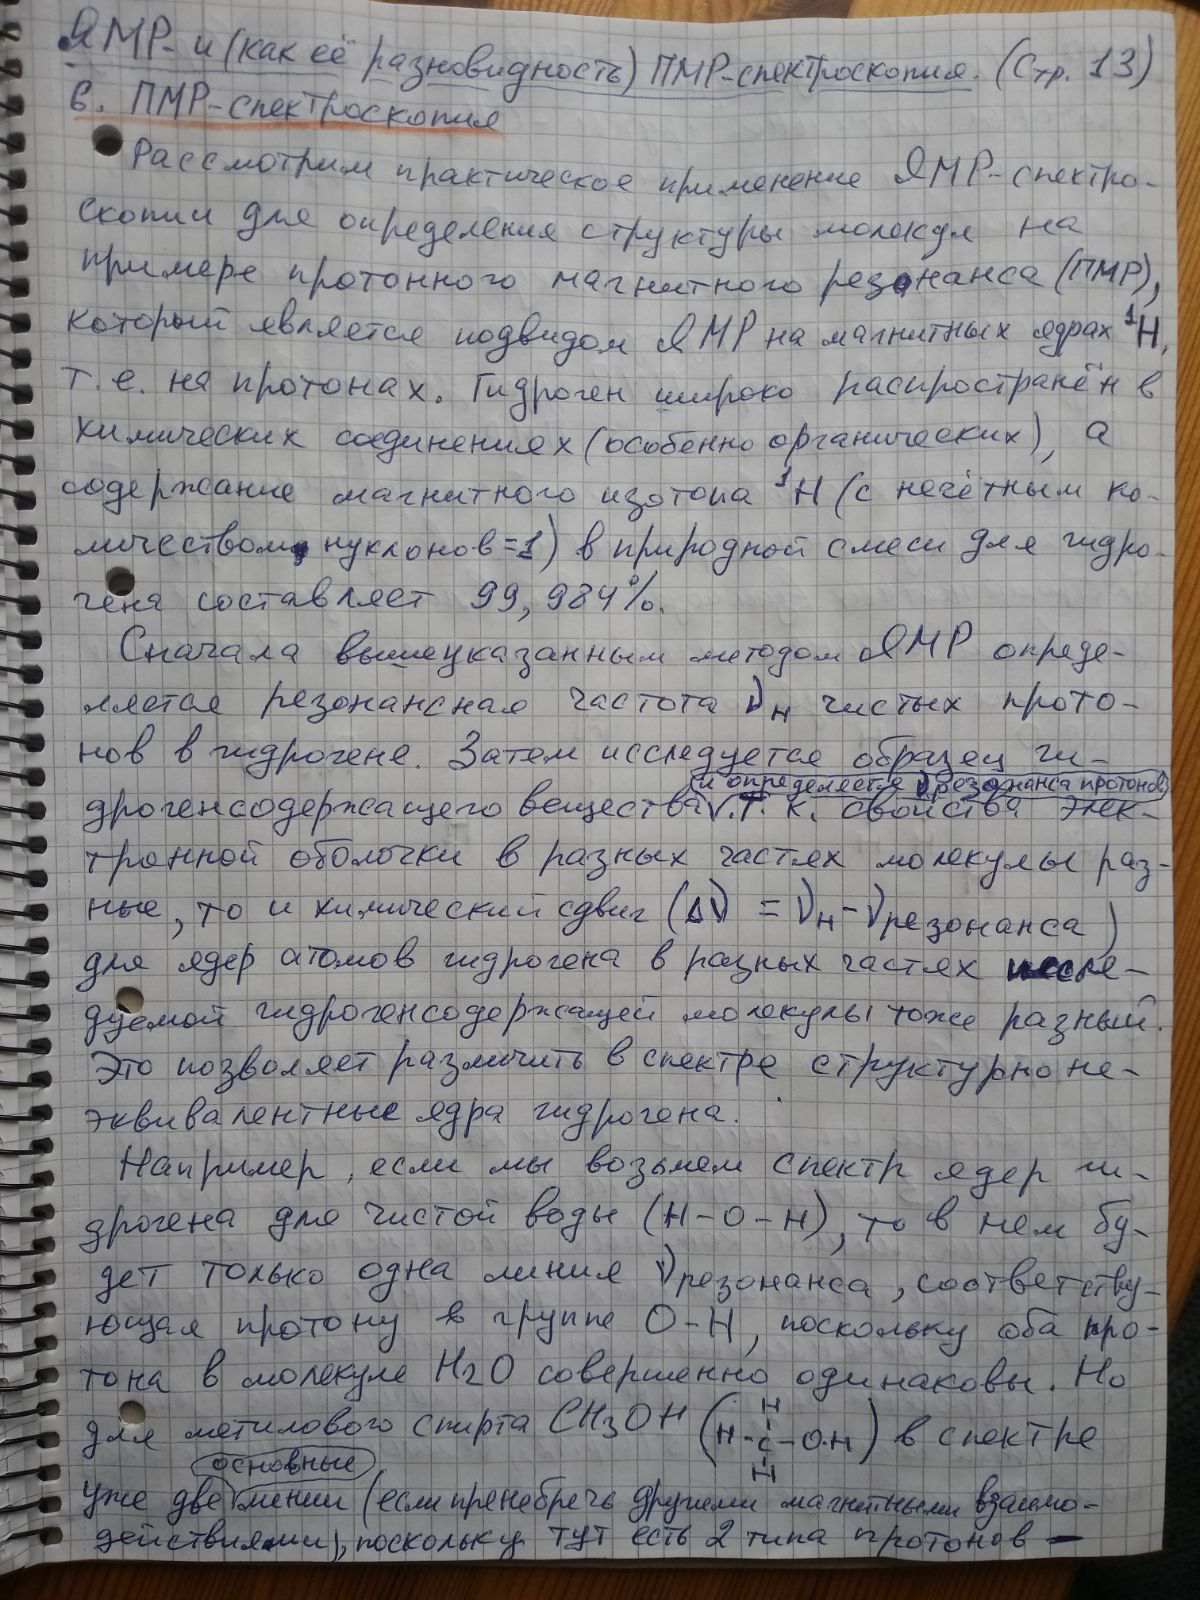 ЯМР- и (как её разновидность) ПМР-спектроскопия. (Стр. 13)
6. ПМР-спектроскопия
Рассмотрим практическое применение ЯМР-спектро-
скопии для определения структуры молекул на
примере протонного магнитного резонанса (ПМР),
который является подвидом ЯМР на магнитных ядрах ¹H,
т.е. на протонах. Гидроген широко распространён в
химических соединениях (особенно органических), а
содержание магнитного изотопа ¹H (с нечётным ко-
личеством нуклонов=1) в природной смеси для гидро-
гена составляет 99,984%.
Сначала вышеуказанным методом ЯМР опреде-
ляется резонансная частота νH чистых прото-
нов в гидрогене. Затем исследуется образец ги-
и определяется ν резонанса протонов
дрогенсодержащего вещества√. Т. к. свойства элек-
тронной оболочки в разных частях молекулы раз-
ные, то и химический сдвиг (Δν = νH - νрезонанса)
для ядер атомов гидрогена в разных частях иссле-
дуемой гидрогенсодержащей молекулы тоже разный.
Это позволяет различить в спектре структурно не-
эквивалентные ядра гидрогена.
Например, если мы возьмем спектр ядер ги-
дрогена для чистой воды (H-O-H), то в нем бу-
дет только одна линия νрезонанса, соответству-
ющая протону в группе O-H, поскольку оба про-
тона в молекуле H2O совершенно одинаковы. Но
для метилового спирта CH3OH (H-C-O-H) в спектре
H
H
основные
уже две линии (если пренебречь другими магнитными взаимо-
действиями), поскольку тут есть 2 типа протонов -